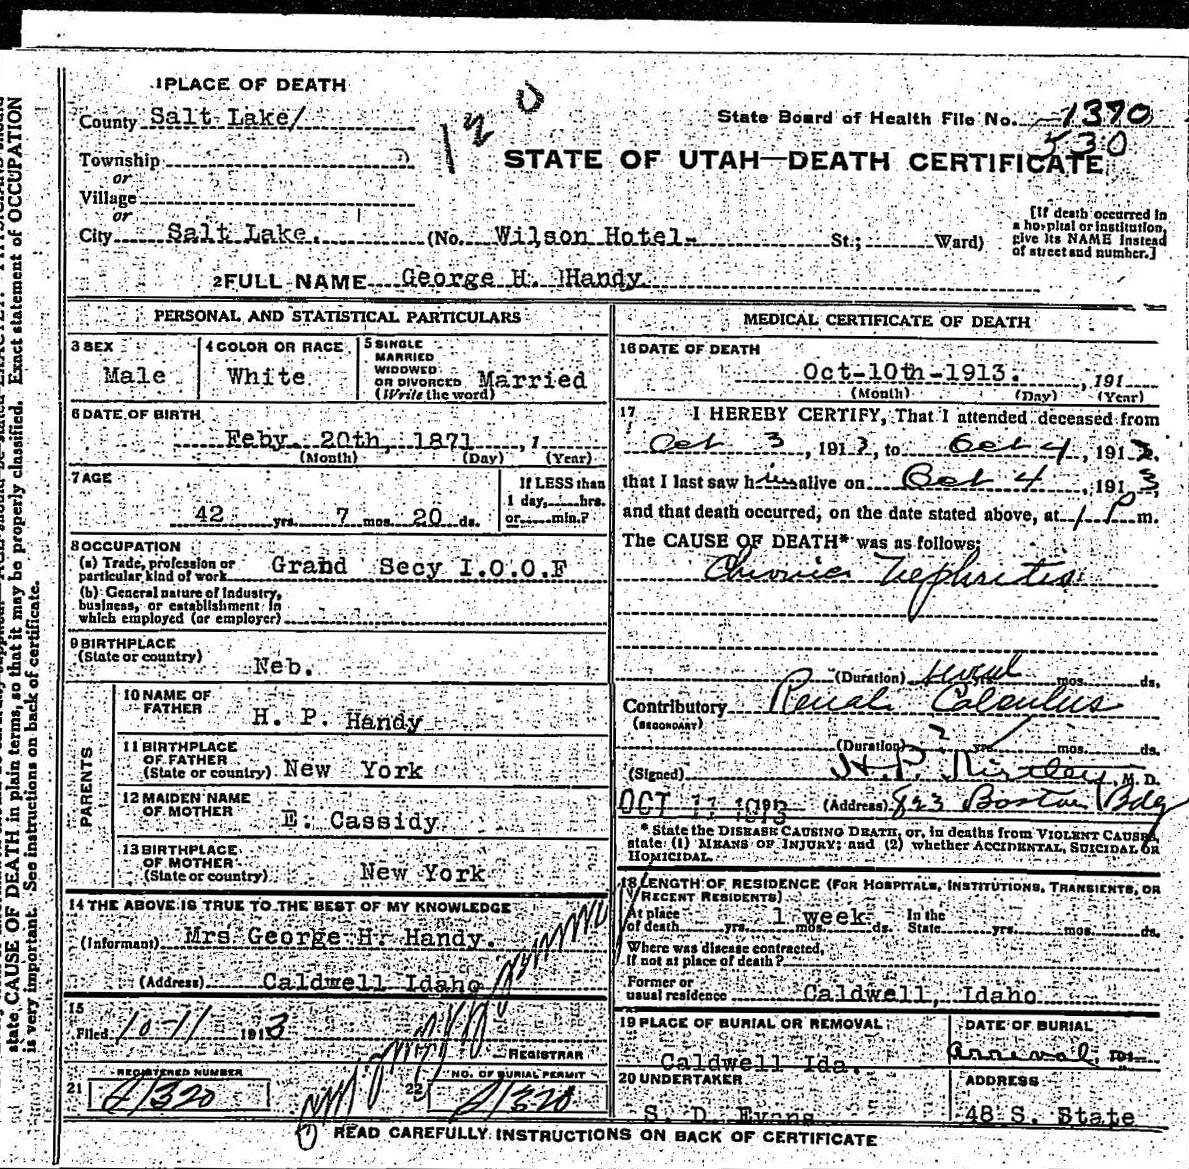 1 PLACE OF DEATH
County Salt Lake/
State Board of Health File No. 1370
530
120
STATE OF UTAH—DEATH CERTIFICATE
Township
or
Village
or
City Salt Lake. (No. Wilson Hotel- St.; Ward)
[If death occurred in
a hospital or institution,
give its NAME instead
of street and number.]
2 FULL NAME George H. Handy
PERSONAL AND STATISTICAL PARTICULARS
3 SEX
Male
4 COLOR OR RACE
White
5 SINGLE
MARRIED
WIDOWED
OR DIVORCED Married
(Write the word)
6 DATE OF BIRTH
Feby 20th, 1871, 1
(Month) (Day) (Year)
7 AGE
If LESS than
1 day, hrs.
or min.?
42 yrs. 7 mos. 20 ds.
8 OCCUPATION
(a) Trade, profession or
particular kind of work Grand Secy I.O.O.F
(b) General nature of industry,
business, or establishment in
which employed (or employer)
9 BIRTHPLACE
(State or country) Neb.
PARENTS
10 NAME OF
FATHER H. P. Handy
11 BIRTHPLACE
OF FATHER
(State or country) New York
12 MAIDEN NAME
OF MOTHER E. Cassidy
13 BIRTHPLACE
OF MOTHER
(State or country) New York
14 THE ABOVE IS TRUE TO THE BEST OF MY KNOWLEDGE
(Informant) Mrs George H. Handy.
(Address) Caldwell Idaho
15
Filed 10-11 1913
REGISTRAR
21 REGISTERED NUMBER
22 NO. OF BURIAL PERMIT
MEDICAL CERTIFICATE OF DEATH
16 DATE OF DEATH
Oct-10th-1913. , 191
(Month) (Day) (Year)
17 I HEREBY CERTIFY, That I attended deceased from
Oct 3, 1913, to Oct 4, 1913.
that I last saw him alive on Oct 4, 1913
and that death occurred, on the date stated above, at 1 P m.
The CAUSE OF DEATH* was as follows:
Chronic Nephritis
(Duration) several yrs. mos. ds.
Contributory Renal Calculus
(SECONDARY)
(Duration) ? yrs. mos. ds.
(Signed) H.P. Kirtley, M. D.
OCT 11 1913 (Address) 823 Boston Bldg
* State the DISEASE CAUSING DEATH, or, in deaths from VIOLENT CAUSES,
state (1) MEANS OF INJURY; and (2) whether ACCIDENTAL, SUICIDAL OR
HOMICIDAL.
18 LENGTH OF RESIDENCE (FOR HOSPITALS, INSTITUTIONS, TRANSIENTS, OR
RECENT RESIDENTS)
At place
of death yrs. mos. 1 week ds. In the
State yrs. mos. ds.
Where was disease contracted,
If not at place of death?
Former or
usual residence Caldwell, Idaho
19 PLACE OF BURIAL OR REMOVAL
Caldwell Ida.
DATE OF BURIAL
arrival 191
20 UNDERTAKER
S. D. Evans
ADDRESS
48 S. State
READ CAREFULLY INSTRUCTIONS ON BACK OF CERTIFICATE
state CAUSE OF DEATH in plain terms, so that it may be properly classified. Exact statement of OCCUPATION
is very important. See instructions on back of certificate.